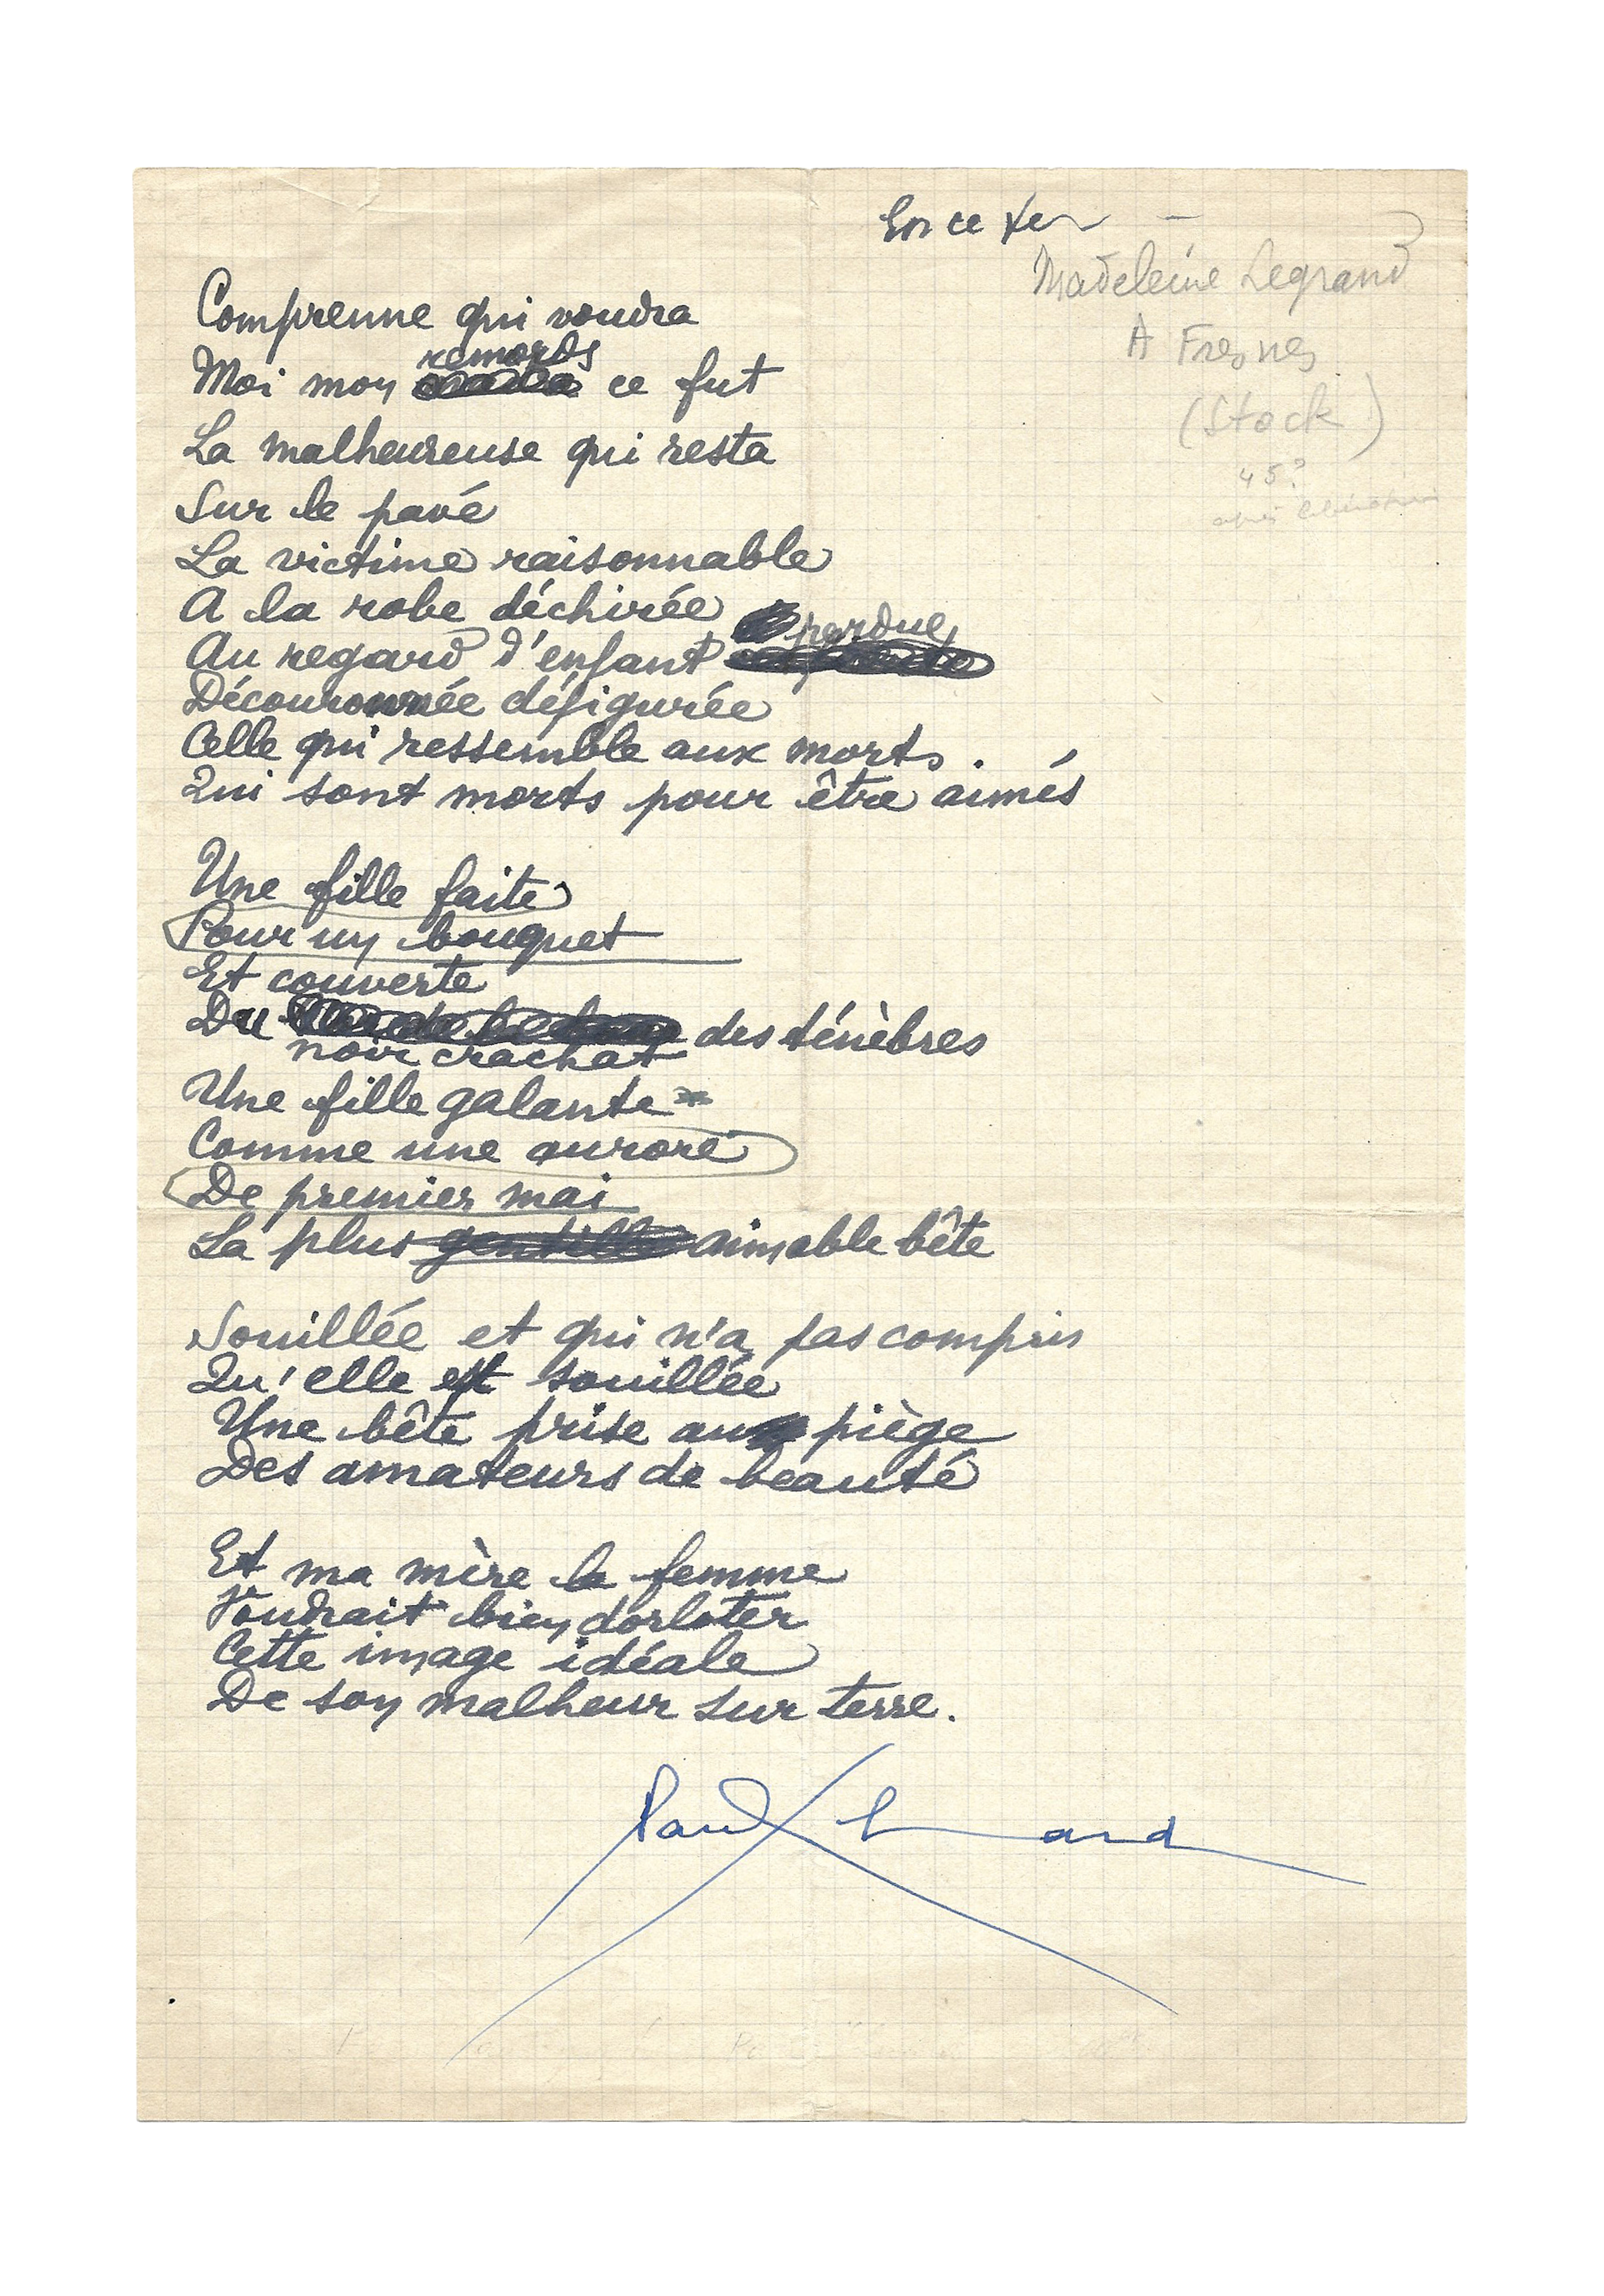 En ce te
Madeleine Legrand
A Fresnes
(Stock)
45?
après libération
Comprenne qui voudra
remords
Moi mon ce fut
La malheureuse qui resta
Sur le pavé
La victime raisonnable
A la robe déchirée
perdue
Au regard d'enfant
Découronnée défigurée
Celle qui ressemble aux morts.
Qui sont morts pour être aimés
Une fille faite
Pour un bouquet
Et couverte
Du des ténèbres
noir crachat
Une fille galante
Comme une aurore
De premier mai
La plus gentille aimable bête
Souillée et qui n'a pas compris
Qu'elle est souillée
Une bête prise au piège
Des amateurs de beauté
Et ma mère la femme
Voudrait bien dorloter
Cette image idéale
De son malheur sur terre.
Paul Eluard